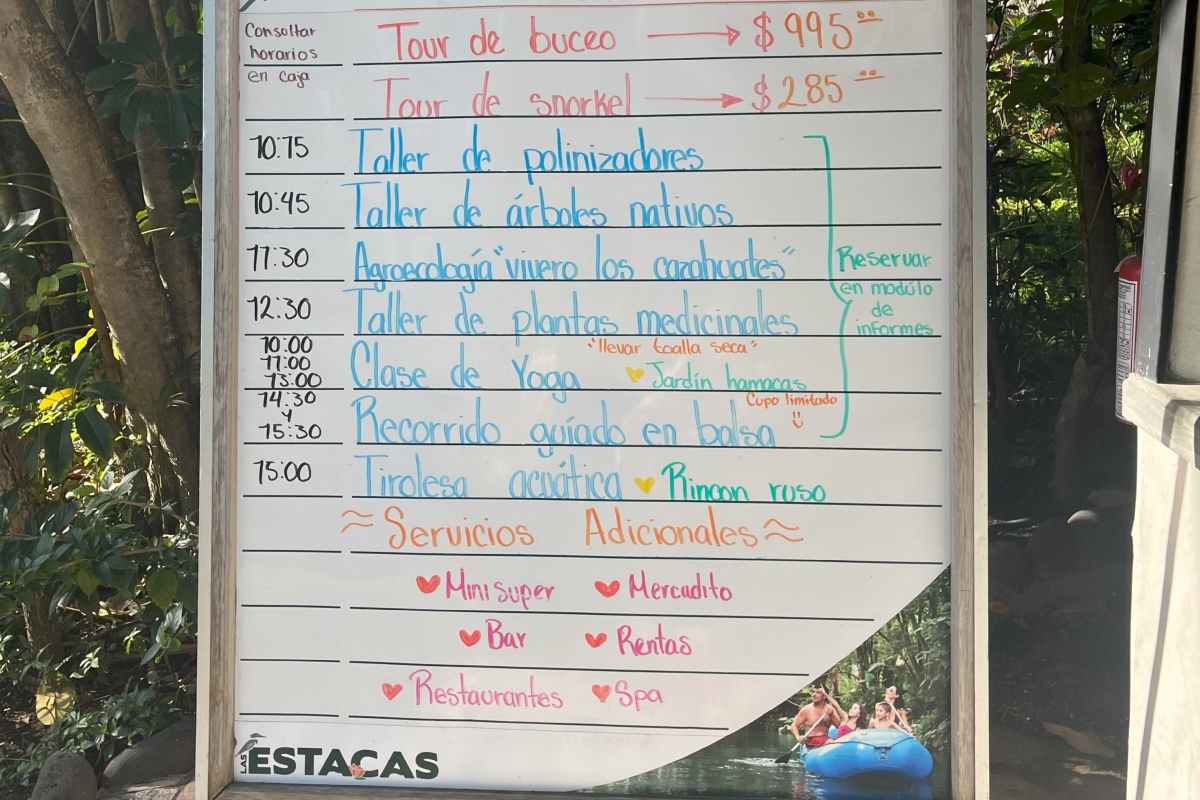 Consultar
horarios
en caja
Tour de buceo → $995.00
Tour de snorkel → $285.00
10:15 Taller de polinizadores
10:45 Taller de árboles nativos
11:30 Agroecología "vivero los cazahuates"
12:30 Taller de plantas medicinales
Reservar
en modúlo
de
informes
10:00
11:00
13:00
"llevar toalla seca"
Clase de Yoga Jardín hamacas
14:30
y
15:30
Cupo limitado
Recorrido guíado en balsa
15:00 Tirolesa acuática Rincon ruso
≈ Servicios Adicionales ≈
Mini super Mercadito
Bar Rentas
Restaurantes Spa
LAS ESTACAS